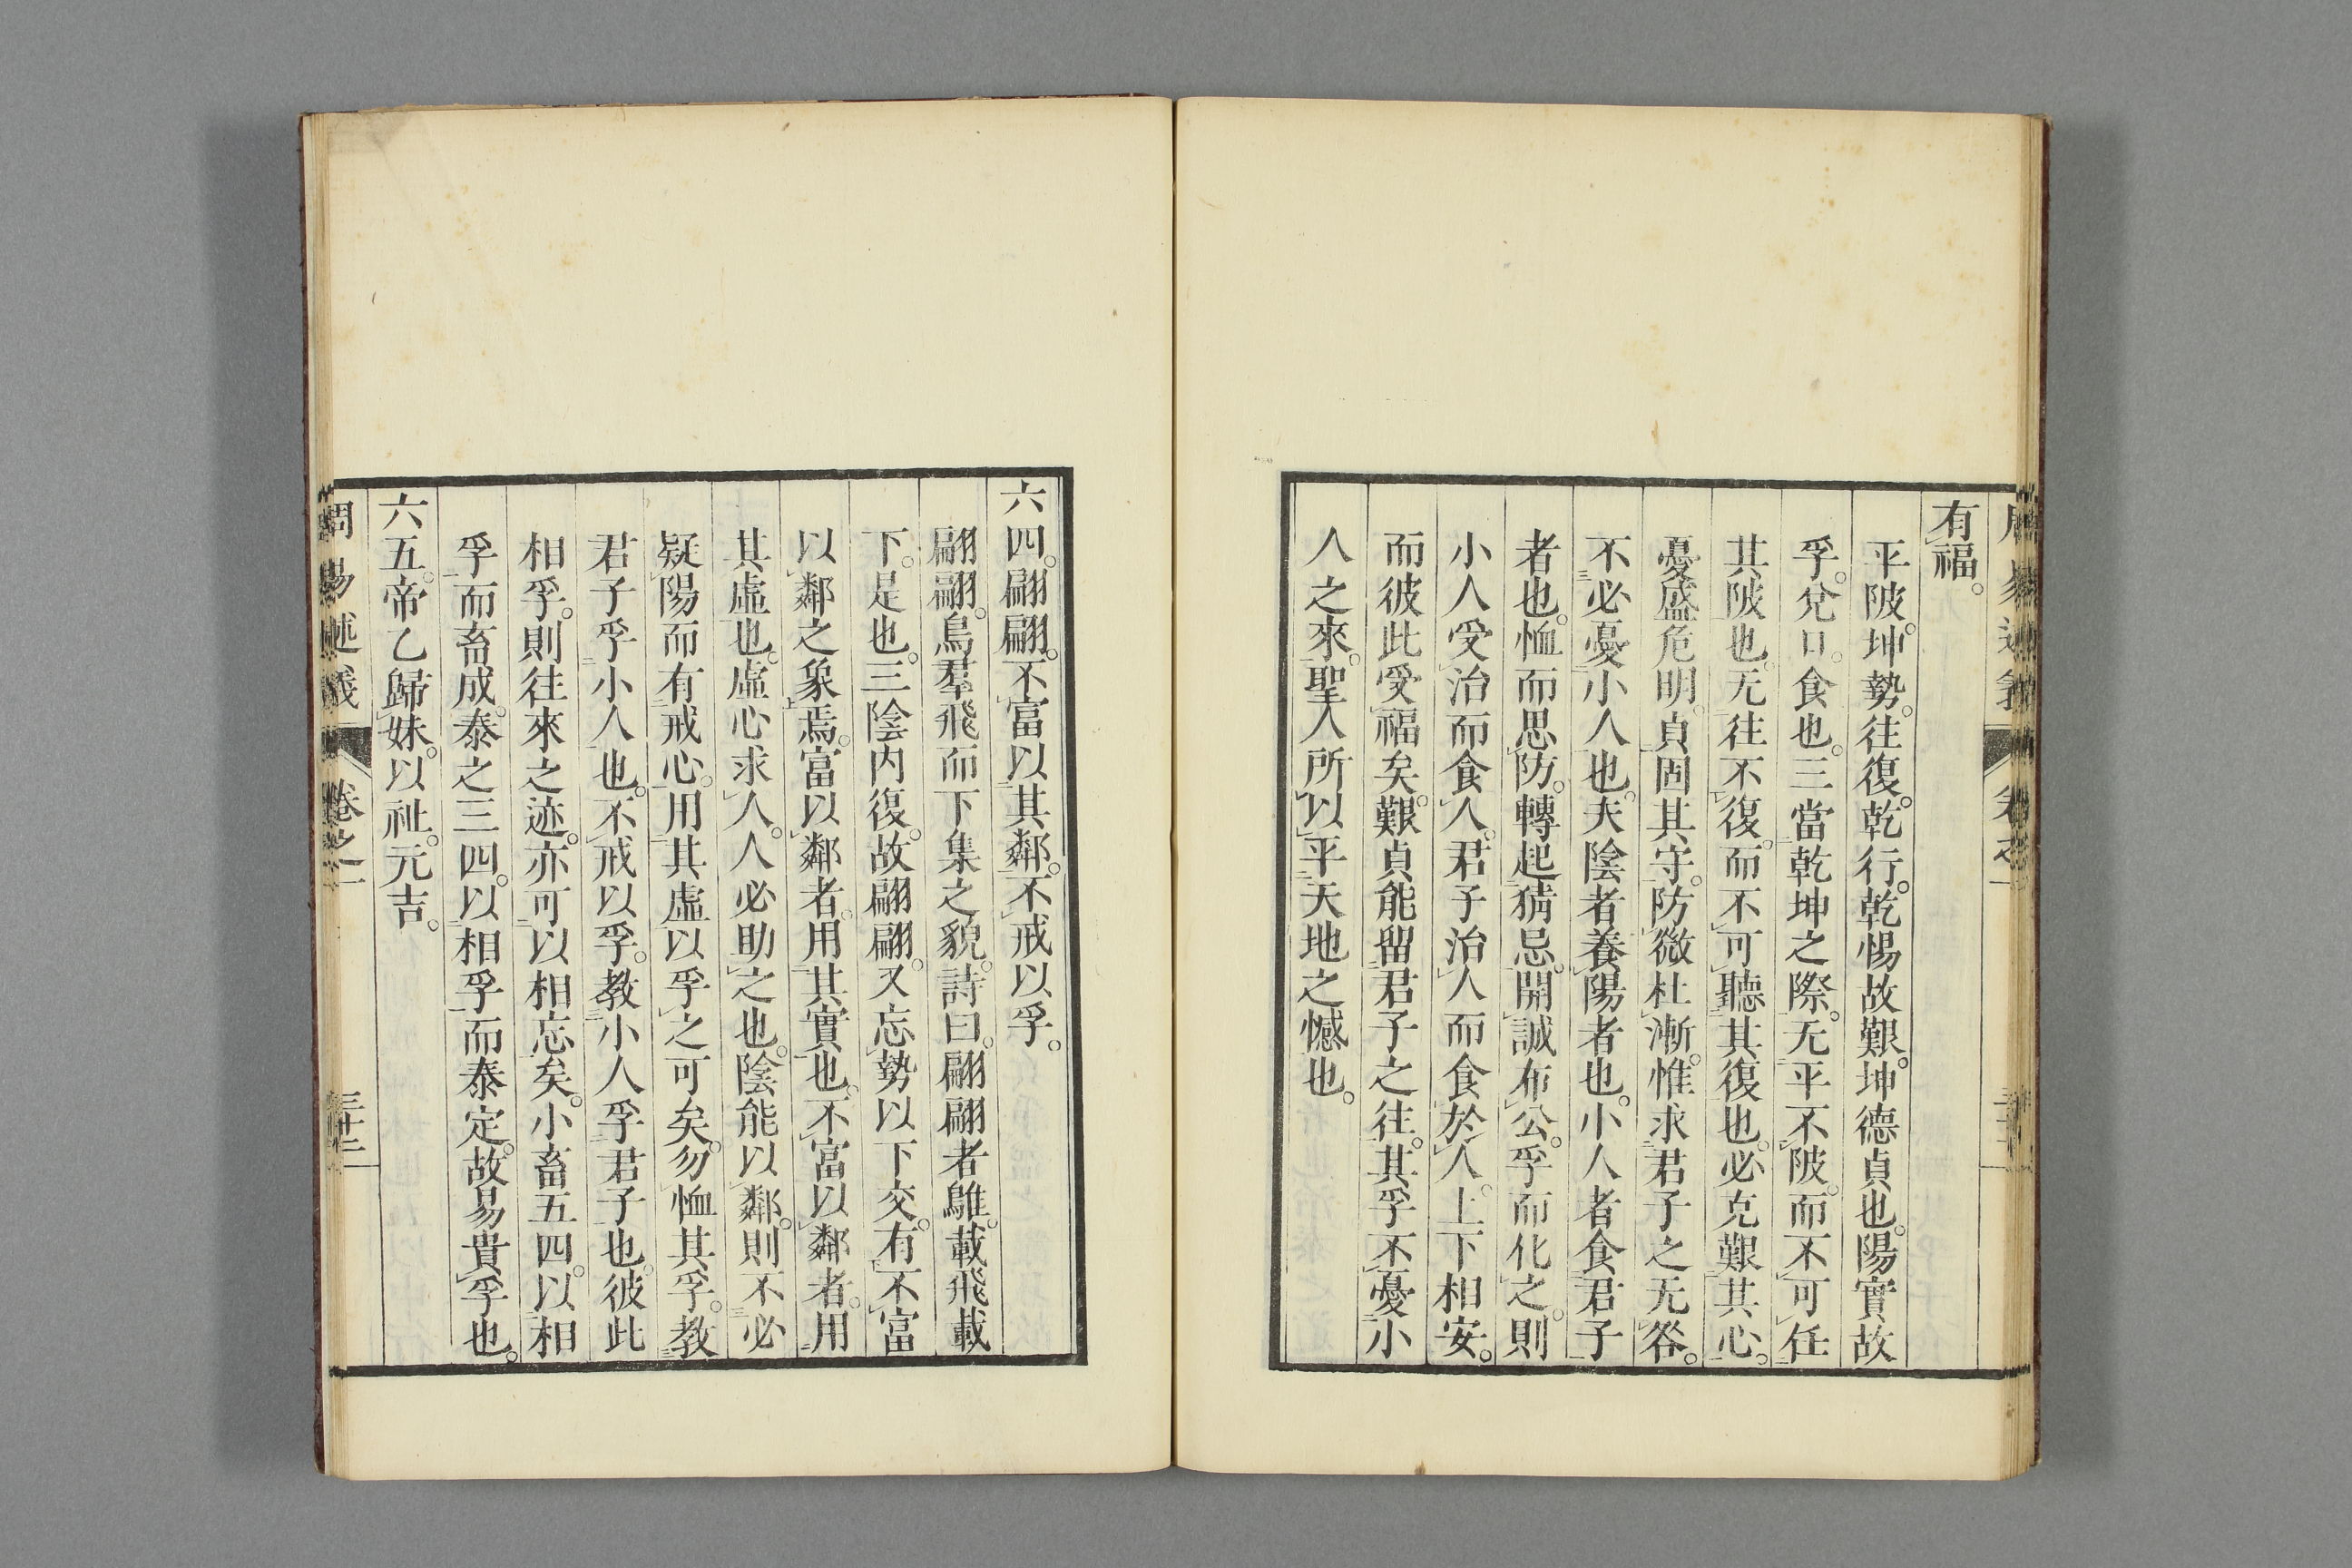 有福。
平陂。坤勢。往復。乾行。乾惕故艱。坤德貞也。陽實故
孚。兌口。食也。三當乾坤之際。无平不陂。而不可任
其陂也。无往不復。而不可聽其復也。必克艱其心。
憂盛危明。貞固其守。防微杜漸。惟求君子之无咎。
不必憂小人也。夫陰者養陽者也。小人者食君子
者也。恤而思防。轉起猜忌。開誠布公。孚而化之。則
小人受治而食人。君子治人而食於人。上下相安。
而彼此受福矣。艱貞能留君子之往。其孚不憂小
人之來。聖人所以平天地之憾也。
六四。翩翩。不富以其鄰。不戒以孚。
翩翩。鳥羣飛而下集之貌。詩曰。翩翩者鵻。載飛載
下。是也。三陰内復。故翩翩。又忘勢以下交。有不富
以鄰之象焉。富以鄰者。用其實也。不富以鄰者。用
其虛也。虛心求人。人必助之也。陰能以鄰。則不必
疑陽而有戒心。用其虛以孚之可矣。勿恤其孚。教
君子孚小人也。不戒以孚。教小人孚君子也。彼此
相孚。則往來之迹。亦可以相忘矣。小畜五四。以相
孚而畜成。泰之三四。以相孚而泰定。故易貴孚也。
六五。帝乙歸妹。以祉。元吉。
周易述義 卷之一 三十三